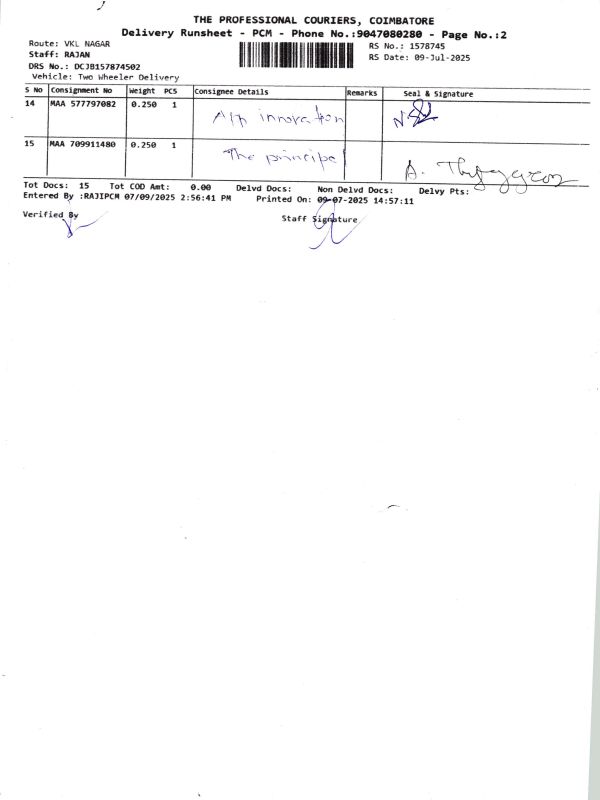 THE PROFESSIONAL COURIERS, COIMBATORE
Delivery Runsheet - PCM - Phone No.:9047080280 - Page No.:2
Route: VKL NAGAR
Staff: RAJAN
DRS No.: DCJB157874502
Vehicle: Two Wheeler Delivery
RS No.: 1578745
RS Date: 09-Jul-2025
S No Consignment No Weight PCS Consignee Details Remarks Seal & Signature
14 MAA 577797082 0.250 1 innovation
15 MAA 709911480 0.250 1 The principal
Tot Docs: 15 Tot COD Amt: 0.00 Delvd Docs: Non Delvd Docs: Delvy Pts:
Entered By :RAJIPCM 07/09/2025 2:56:41 PM Printed On: 09-07-2025 14:57:11
Verified By Staff Signature